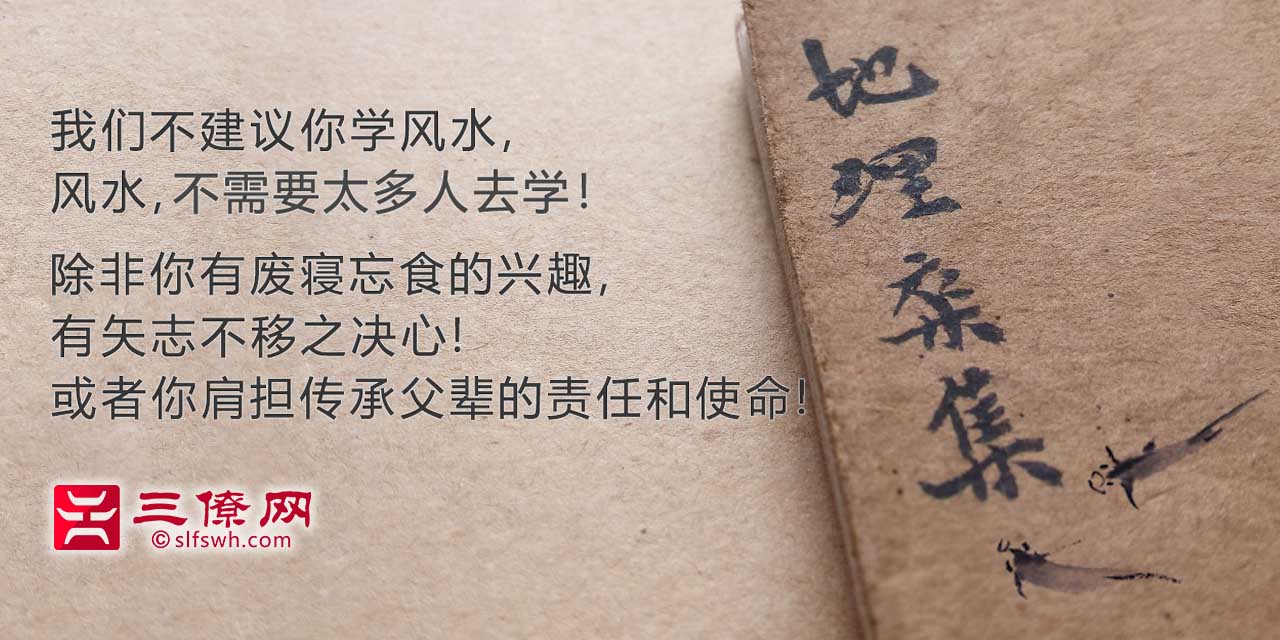 我们不建议你学风水,
风水,不需要太多人去学!
除非你有废寝忘食的兴趣,
有矢志不移之决心!
或者你肩担传承父辈的责任和使命!
三僚网
©slfswh.com
地理杂集